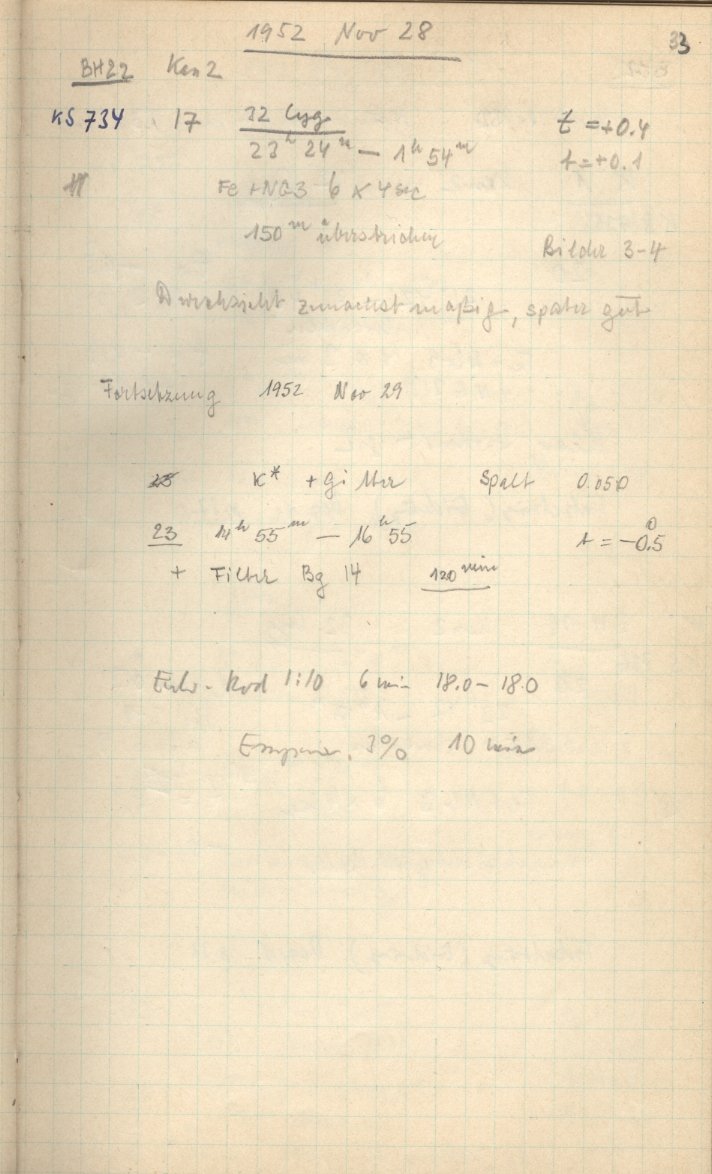 33
1952 Nov 28
BH22 Kan 2
KS 734 17 32 Cyg t = +0.4
23h 24m — 1h 54m t = +0.1
Fe + NG3 6 x 4 sec
150m überstrichen
Bilder 3-4
Durchsicht zunächst mäßig, später gut
Fortsetzung 1952 Nov 29
K* + Gitter Spalt 0.050
23 14h 55m — 16h 55 t = -0.5°
+ Filter Bg 14 120 min
Rod 1:10 6 min 18.0 - 18.0
3% 10 min